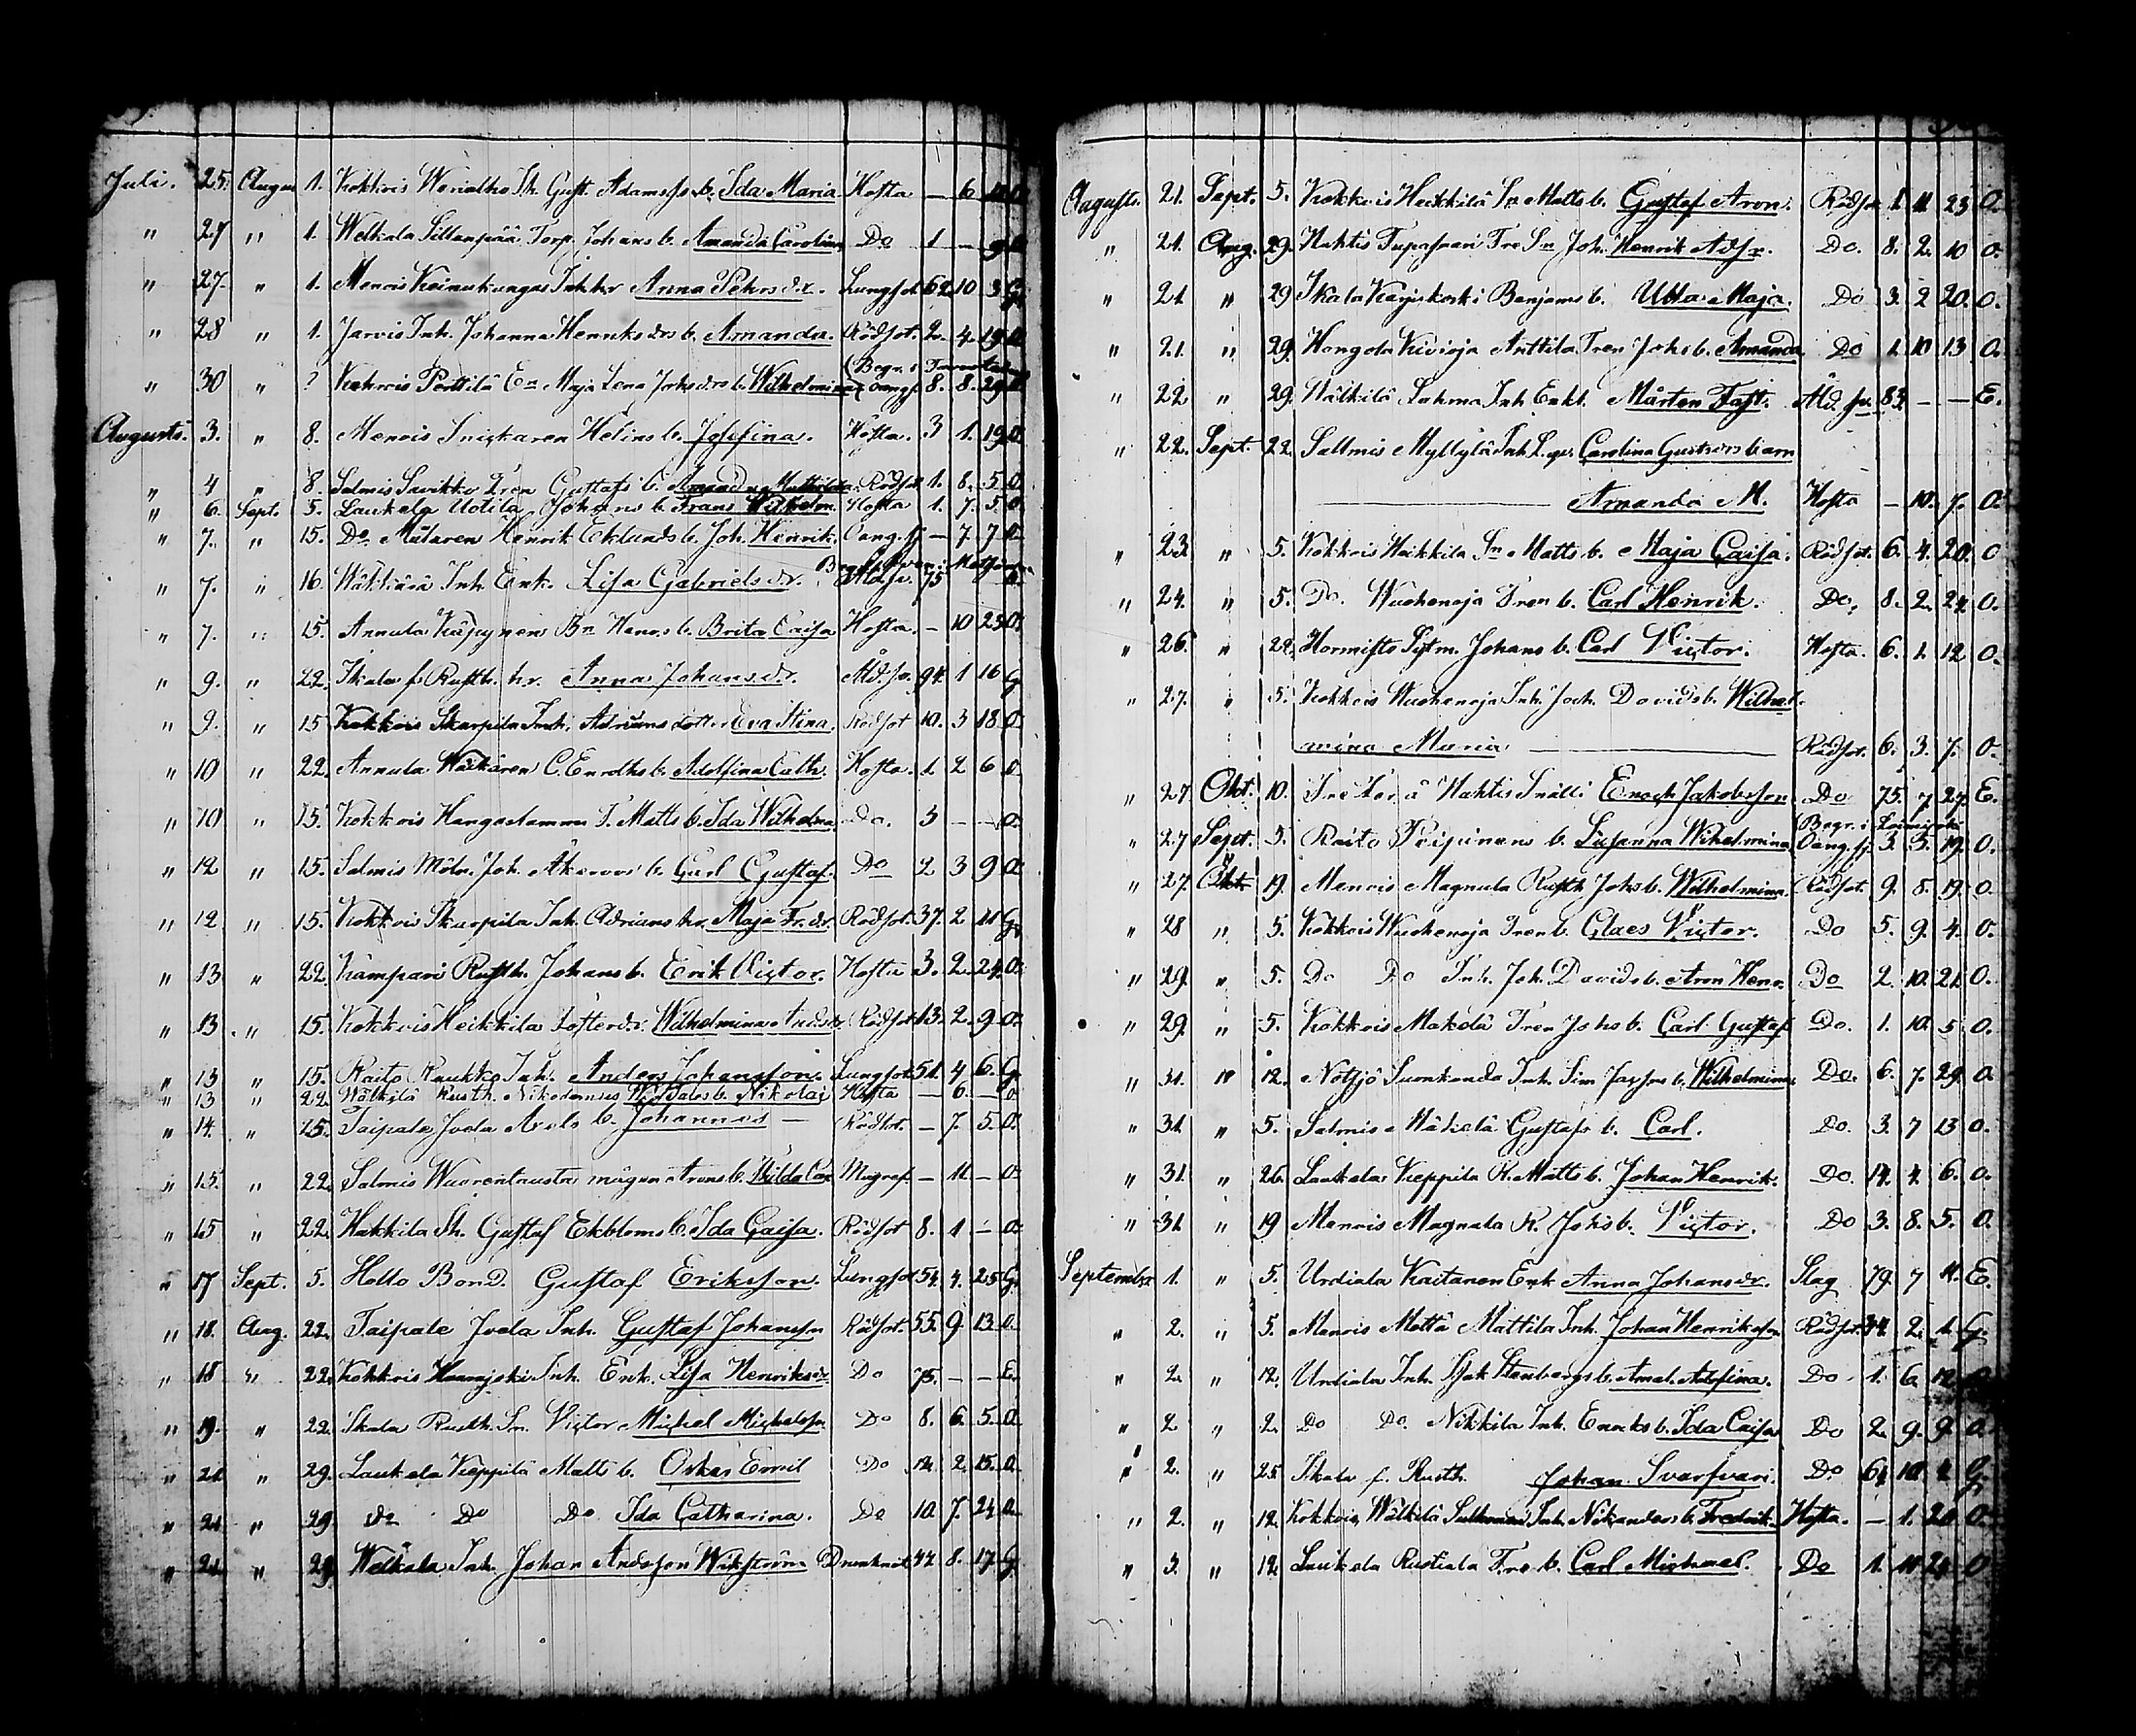 Juli. 25. Augu 1. Kokkois Gust. Adamss b. Ida Maria Hosta — 6
" 27 " 1. Welkala Sillanpää Torp. Johans b. Amanda Carolina Do 1 —
" 27. " 1. Menois Koinukangas Inh. hr Anna Pehrsdr. Lungsot 62 10 3 G.
" 28 " 1. Jarvis Inh. Johanna Henriksdrs b. Amanda. Rödsot. 2. 4. 19
(Begr. i
" 30 " ? Perttilä Maja Lena Johsdrs b. Wilhelmina 8. 8. 29
Augusti. 3. " 8. Menois Snickaren Helins b. Josefina. Hosta. 3 1. 19 O.
" 4 " 8. Salmis Savikko Tren Gustafs b. Amanda Mathilda. Rödsot 1. 8. 5 O.
" 6. Sept. 5. Laukela Uotila Johans b. Frans Wilhelm. Hosta 1. 7. 5. O.
" 7. " 15. Do. Målaren Henrik Eklunds b. Joh. Henrik. Oang. sj — 7. 7. O.
" 7. " 16. Inh. Enk. Lisa Gabrielsdr. Åld.sv. 75
" 7. " 15. Annula Käpynens Henrs b. Brita Caisa Hosta. — 10 23 O.
" 9. " 22. Skala f. Rusth. hr. Anna Johansdr. Åld.sv. 94. 1 16 G
" 9. " 15 Kokkois Skarpila Inh. Adrians dotter Eva Stina. Rödsot 10. 3 18 O.
" 10 " 22. Annula C. Enroths b. Adolfina Cath. Hosta. 1 2 6 O.
" 10 " 15. Kokkois Hangaslammi T. Matts b. Ida Wilhelmina Do. 3 — — O.
" 12 " 15. Salmis Möln. Joh. Åkeroos b. Carl Gustaf. Do 2 3 9 O.
" 12. " 15. Kokkois Skarpila Inh. Adrians hr. Maja Fr.dr. Rödsot. 37. 2 21 G.
" 13 " 22. Kämpari Rusth. Johans b. Erik Victor. Hosta 3. 2. 24. O.
" 13 " 15. Kokkois Heikkila Wilhelmina Rödsot 13. 2. 9 O.
" 13 " 15. Raito Raukko Inh. Anders Johansson. Lungsot 51. 4 6. G.
" 13 " 22. Wälkilä Rusth. Nikodemus b. Nikolai Hosta — 6. — O
" 14. " 15. Taipale Joela Axels b. Johannes — Rödsot. — 7. 5. O.
" 15. " 22. Salmis Wuorentausta mågen Arons b. Hilda Magref. — 11. — O.
" 15 " 22. Hakkila Sh. Gustaf Ekbloms b. Ida Caisa. Rödsot 8. 1. — O.
" 17 Sept. 5. Hollo Bond. Gustaf Eriksson. Lungsot 54. 4. 25 G.
" 18. Aug. 22. Taipale Joela Inh. Gustaf Johansson Rödsot. 55. 9 13. O.
" 18 " 22. Kokkois Inh. Enk. Lisa Henriksdr Do 75. — — E.
" 19. " 22. Skala Rusth. Sn. Victor Michel Michelsson Do 8. 6. 5. O.
" 21 " 29. Laukela Keppilä Matts b. Oskar Emil Do 12. 2. 15. O.
" 21 " 29. Do Do Do Ida Catharina. Do 10. 7. 24 O.
" 21 " 29. Welkala Inh. Johan Andersson Wikström Drunknat 44. 8. 17 G.
Augusti. 21. Sept. 5. Kokkois Heikkilä Sn Matts b. Gustaf Aron. Rödsot 1. 11. 23 O.
" 21. Aug. 29. Hahtis Joh. Henrik Do. 8. 2. 10 O.
" 21 " 29 Skala Karjukoski Benjams b. Ulla Maja. Do 3. 2 20. O.
" 21. " 29. Hongola Kivioja Anttila Tren Johs b. Amanda Do 1. 10 13 O.
" 22. " 29. Wälkilä Lahma Inh Enkl. Mårten Fast. Åld.sv. 83. — — E.
" 22. Sept. 22. Sallmis Myllylä Inh. Carolina Gustafsdrs barn
— Amanda M. Hosta — 10. 7. O.
" 23. " 5. Kokkois Heikkila Sn Matts b. Maja Caisa. Rödsot. 6. 4. 20. O
" 24. " 5. Do. Wuohenoja Tren b. Carl Henrik. Do. 8. 2. 24. O.
" 26. " 22. Hormisto Sytm. Johans b. Carl Victor. Hosta. 6. 1. 12 O.
" 27. " 5. Kokkois Wuohenoja Inh. Joh. Davids b. Wilhel-
mina Maria — Rödsot. 6. 3. 7. O.
" 27 Okt. 10. å Hahtis Snälli Enoch Jakobsson Do 75. 7. 27. E.
(Begr. i Loimijoki
" 27 Sept. 5. Raito Piipinens b. Susanna Wilhelmina Oang. sj. 3. 5. 19. O.
" 27. Okt. 19. Menois Magnula Rusth. Johs b. Wilhelmina. Rödsot. 9. 8. 19. O.
" 28 " 5. Kokkois Wuohenoja Tren b. Claes Victor. Do 5. 9. 4. O.
" 29. " 5. Do Do Inh. Joh. Davids b. Aron Henr. Do 2. 10. 21. O.
" 29. " 5. Kokkois Makelä Tren Johs b. Carl Gustaf Do. 1. 10. 5 O.
" 31. " 12. Notsjö Suonkanda Inh. Sim b. Wilhelmina Do. 6. 7. 29 O.
" 31. " 5. Salmis Mäkelä Gustafs b. Carl. Do. 3. 7 13 O.
" 31. " 26. Laukela Keppila R. Matts b. Johan Henrik. Do. 14. 4. 6. O.
" 31. " 19 Menois Magnula R. Johs b. Victor. Do 3. 8. 5. O.
September 1. " 5. Urdiala Kaitanen Enk. Anna Johansdr. Slag 79. 7 11. E.
" 2. " 5. Menois Mattä Mattila Inh. Johan Henriksson Rödsot. 34. 2. 1. G.
" 2. " 12. Urdiala Inh. Isak Stenbergs b. Amal. Adolfina. Do. 1. 6. 12
" 2 " 2. Do Do. Nikkila Inh. Enoks b. Ida Caisa Do 2. 9. 9. O.
" 2. " 25. Skala f. Rusth. Johan Svarfvari. Do 64 10. 4. G.
" 2. " 12. Kokkois Wälkilä Inh. Nikanders b. Fredrik. Hosta. — 1. 20 O.
" 3. " 12. Laukela Rustiala b. Carl Michael. Do 1. 11 24. O